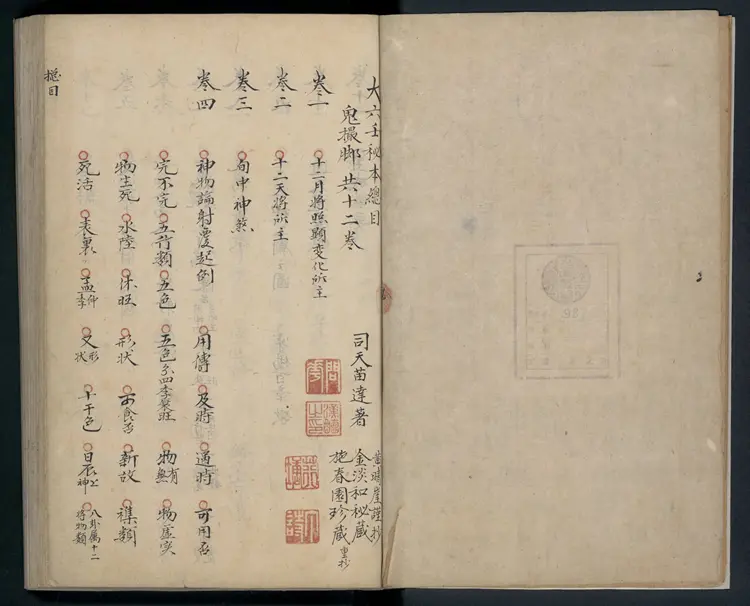 大六壬秘本總目
鬼撮脚 共十二卷
司天苗達著
謹抄
金淡和秘藏
施春園珍藏 重抄
卷一 十二月將照顯変化所主
卷二 十二天將所主
卷三 旬中神煞
卷四 神物論射覆起例 用傳 及時 過時 可用否
完不完 五行類 五色 五色分四季衰旺 物有無 物虛实
物生死 水陸 休旺 形状 可食否 新故 襍類
死活 表裏 孟仲季 又形状 十干色 日辰上神 八卦属十二將物類
總目